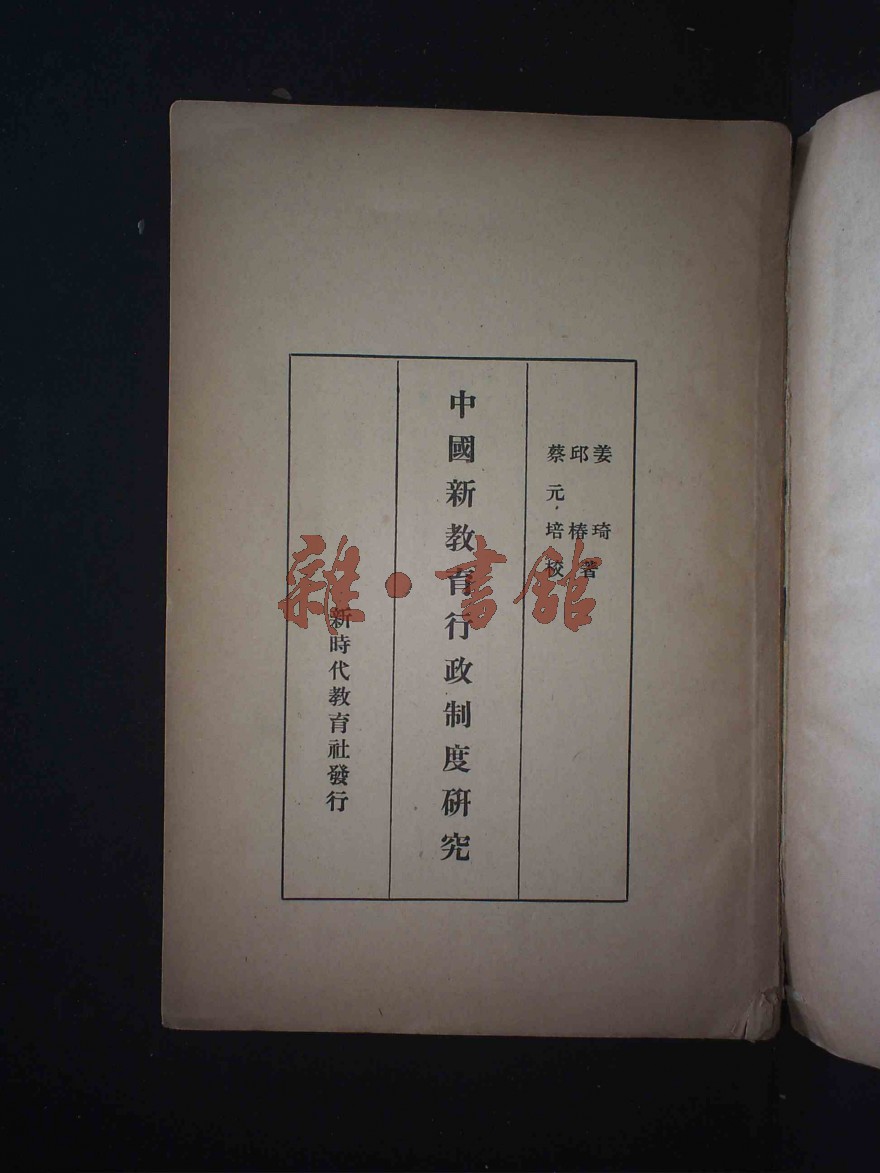 姜琦
邱椿著
蔡元培校
中國新教育行政制度研究
新時代教育社發行
雜·書館